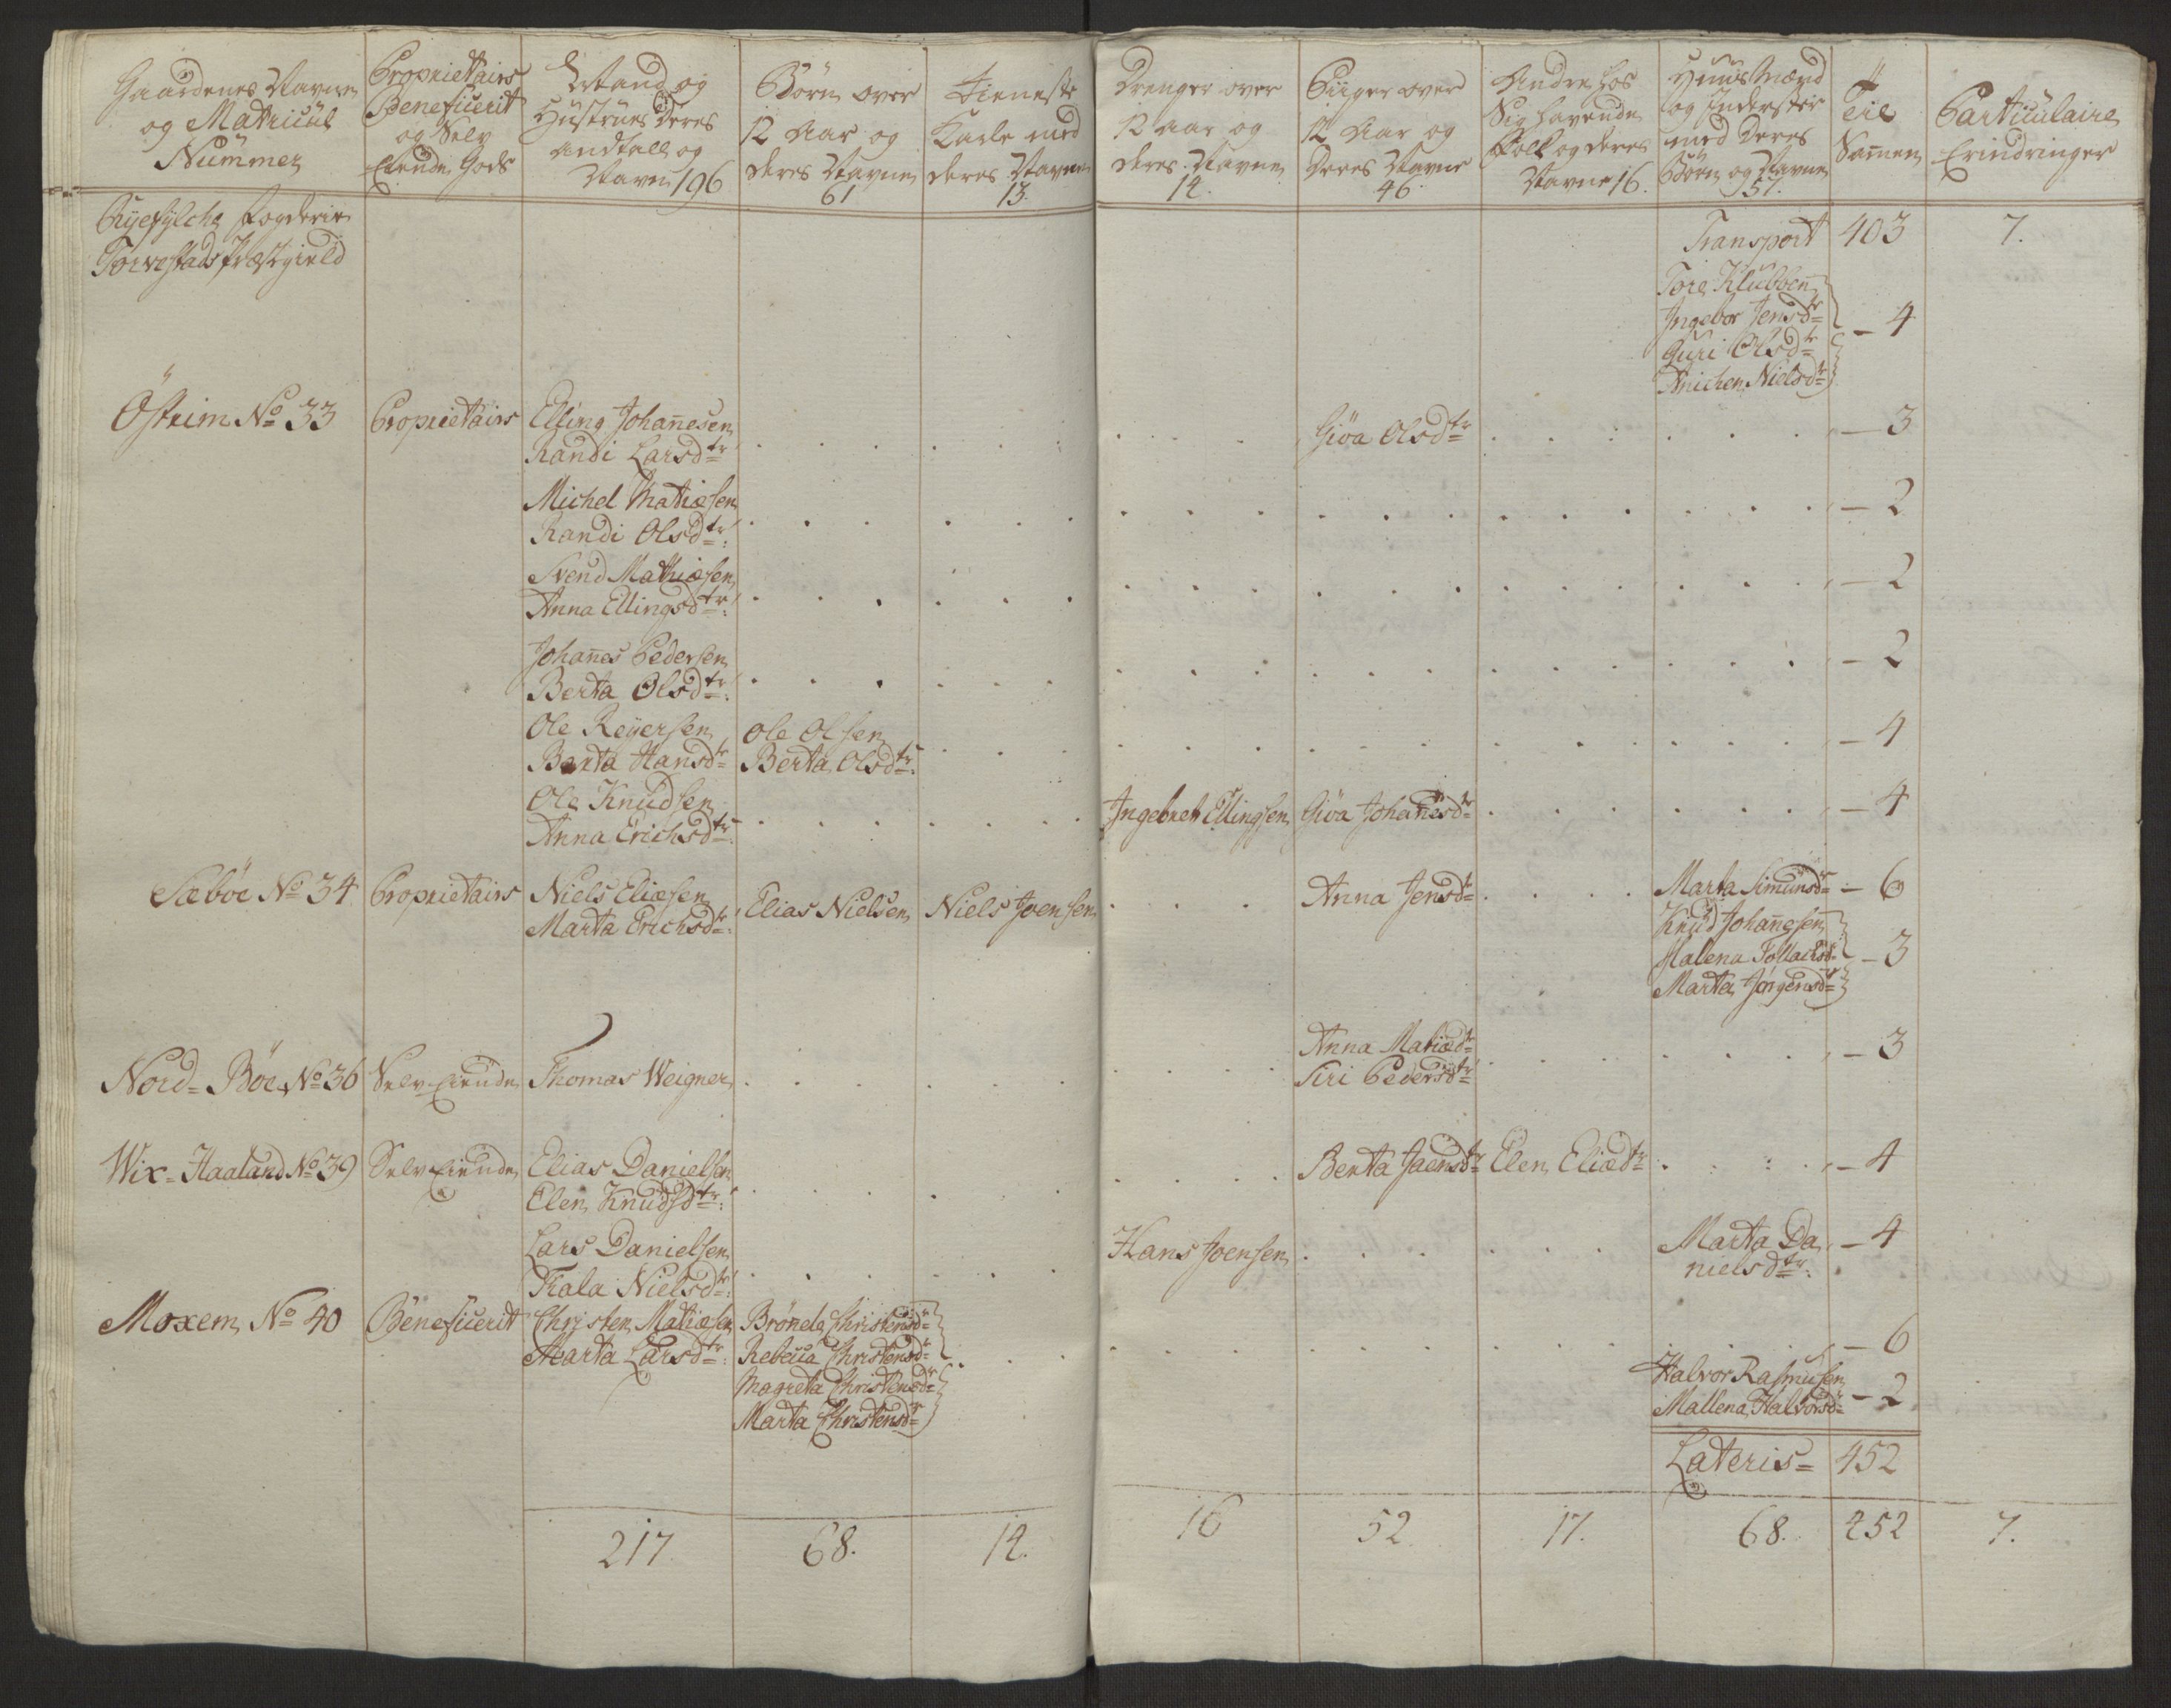 Gaardenes Navne
og Matricul
Nummer
Proprietairs
Beneficerit
og Selv
Eiende Gods
Mand og
Hustrues Deres
Andtall og
Navn 196
Börn over
12 Aar og
deres Navne
61
Tieneste
Karle med
deres Navne
13.
Drenger over
12 aar og
deres Navne
14.
Piiger over
12 Aar og
Deres Navne
46.
Andre hos
Sig havende
Folk og deres
Navne 16.
Huusmænd
og Inderster
med Deres
Börn og Navne
57.
Til
Samen
Particulaire
Erindringer
Ryefylche Fogderie
Torvestads Præstgield
Transport 403 7.
Tore Klubben
Ingebor Jensdtr
Guri Olsdtr
Anichen Nielsdtr
- 4
Östrim No 33 Proprietairs Elling Johannesen
Randi Larsdtr
Giöa Olsdtr - 3
Michel Matiæsen
Randi Olsdtr - 2
Svend Mathiæsen
Anna Ellingsdtr - 2
Johannes Pedersen
Berta Olsdtr - 2
Ole Reyersen Ole Olsen
Berta Hansdtr Berta Olsdtr - 4
Ole Knudsen
Anna Erichsdtr Ingebret Ellingsen Giöa Johannesdtr - 4
Sæböe No 34 Proprietairs Niels Eliæsen
Marta Erichsdtr Elias Nielsen Niels Joensen Anna Jensdtr Marta Simunsdtr - 6
Knud Johannesen
Malena Tollachsdtr
Marta Jörgensdtr
- 3
Nord-Böe No 36 Selv-Eiende Thomas Weigner Anna Matiædtr
Siri Pedersdtr
- 3
Wix-Haaland No 39 Selv Eiende Elias Danielsen
Elen Knudsdtr Berta Jaensdtr Elen Eliædtr - 4
Lars Danielsen
Kala Nielsdtr Hans Joensen Marta Da
nielsdtr
- 4
Moxem No 40 Beneficerit Christen Matiæsen
Marta Larsdtr
Brönele Christensdtr
Rebecca Christensdtr
Magreta Christensdtr
Marta Christensdtr
- 6
Halvor Rasmusen
Mallena Halvorsdtr
- 2
Lateris = 452
217 68. 14. 16 52 17. 68. 452 7.